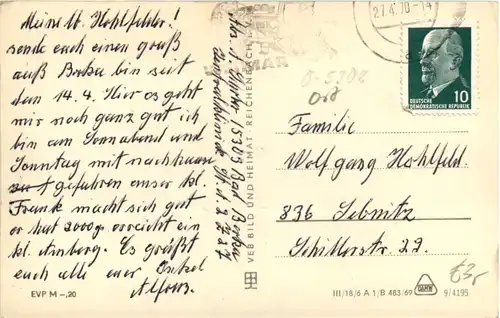 Meine lb. Hohlfelder!
sende euch einen gruß
auß Berka bin seit
dem 14.4. Hier es geht
mir noch ganz gut ich
bin am Sonnabend und
Sonntag mit nachhause
gefahren unser kl.
Frank macht sich gut
er hat 2000g erreicht ein
kl. Es grüßt
euch alle euer Onkel
Alfons.
EVP M –,20
5303 Bad Berka
VEB BILD UND HEIMAT REICHENBACH i. V.
MAR
27.4.70-14
DEUTSCHE
DEMOKRATISCHE REPUBLIK
10
Familie
Wolfgang Hohlfeld.
836 Sebnitz
Schillerstr. 22.
III/18/6 A 1/B 483/69
9/4195